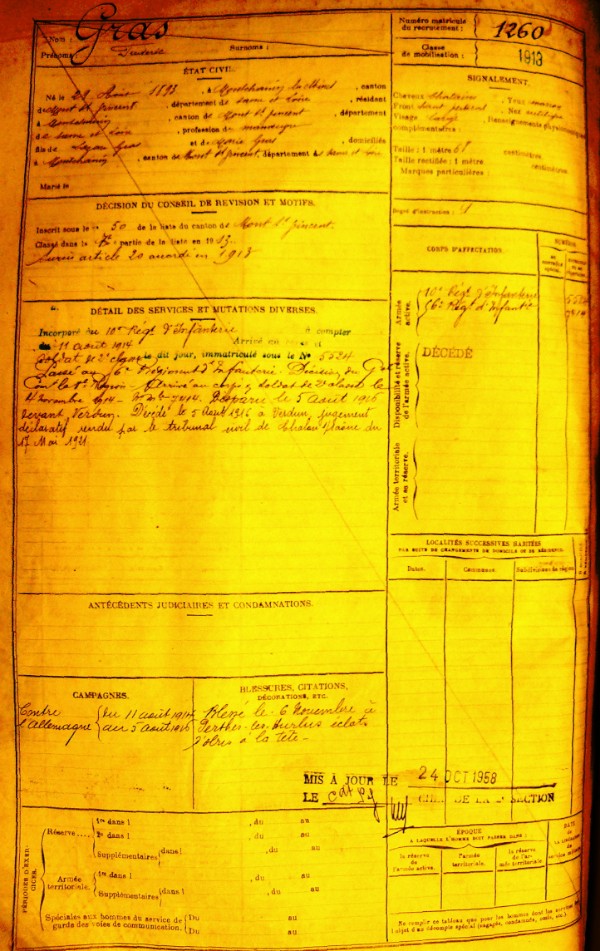 Nom : Gras
Prénoms : Surnoms :
Numéro matricule du recrutement : 1260
Classe de mobilisation : 1913
ÉTAT CIVIL.
Né le 28 1893, à Montchanin les Mines, canton
de Mont St Vincent, département de Saone et Loire, résidant
à Montchanin, canton de Mont St Vincent, département
de Saone et Loire, profession de
fils de Gras et de Marie Gras, domiciliés
à Montchanin, canton de Mont St Vincent, département de Saone et Loire
Marié le
SIGNALEMENT.
Cheveux chatains Yeux
Front Nez rectiligne
Visage large Renseignements physionomiques
complémentaires :
Taille : 1 mètre 68 centimètres.
Taille rectifiée : 1 mètre centimètres.
Marques particulières :
DÉCISION DU CONSEIL DE REVISION ET MOTIFS.
Inscrit sous le n° 50 de la liste du canton de Mont St Vincent.
Classé dans la partie de la liste en 1913.
Sursis article 20 accordé en 1913
Degré d'instruction :
CORPS D'AFFECTATION.
NUMÉROS
Armée active.
10e Régt d'Infanterie 5524
56e Régt d'Infantie 7914
Disponibilité et réserve de l'armée active.
DÉCÉDÉ
Armée territoriale et sa réserve.
DÉTAIL DES SERVICES ET MUTATIONS DIVERSES.
Incorporé au 10e Régt d'Infanterie à compter
du 11 août 1914. Arrivé au corps et
soldat de 2e classe le dit jour, immatriculé sous le N° 5524
Passé au 56e Régiment d'Infanterie Décision du Gal
Comt la 8e Région - Arrivé au corps, soldat de 2e classe le
4 novembre 1914 - 7914. Disparu le 5 août 1916
devant Verdun. Décédé le 5 Août 1916 à Verdun, jugement
déclaratif rendu par le tribunal civil de Chalon s/Saône du
17 Mai 1921
LOCALITÉS SUCCESSIVES HABITÉES
PAR SUITE DE CHANGEMENTS DE DOMICILE OU DE RÉSIDENCE.
Dates. Communes. Subdivisions de région.
ANTÉCÉDENTS JUDICIAIRES ET CONDAMNATIONS.
CAMPAGNES.
Contre l'Allemagne
du 11 août 1914
au 5 août 1916
BLESSURES, CITATIONS,
DÉCORATIONS, ETC.
Blessé le 6 Novembre à
Perthes-les-Hurlus éclats
d'obus à la tête -
MIS À JOUR LE 24 OCT 1958
LE DE LA SECTION
PÉRIODES D'EXERCICES.
Réserve
1re dans l , du au
2e dans l , du au
Supplémentaires dans l , du au
Armée territoriale.
1re dans l , du au
Supplémentaires dans l , du au
Spéciales aux hommes du service de
garde des voies de communication.
Du au
Du au
ÉPOQUE
À LAQUELLE L'HOMME DOIT PASSER DANS :
la réserve de l'armée active.
l'armée territoriale.
la réserve de l'armée territoriale.
DATE
Ne remplir ce tableau que pour les hommes dont les services font
l'objet d'un décompte spécial (engagés, condamnés, omis, etc.)